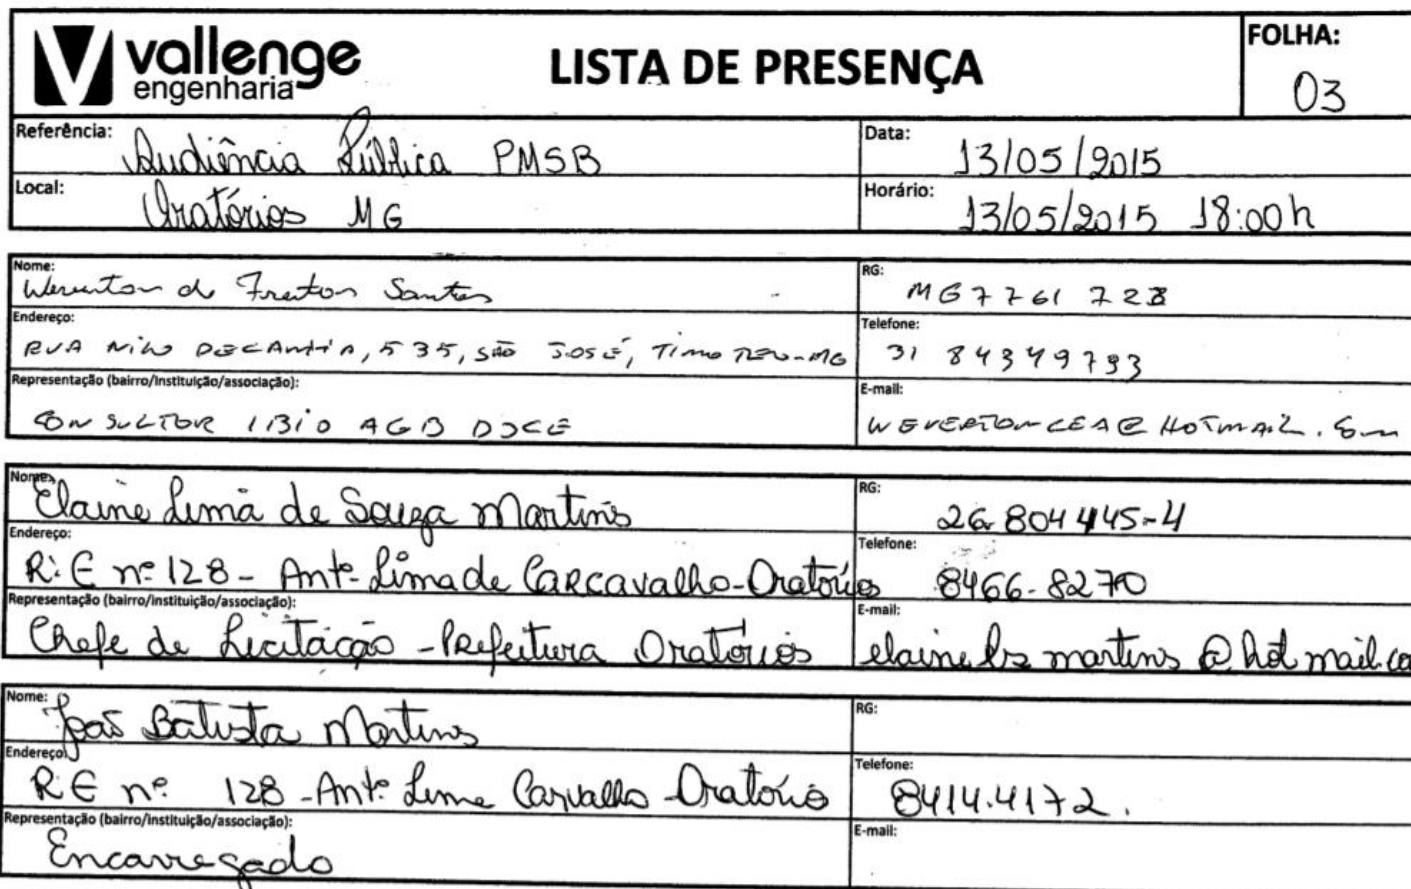 vallenge
engenharia
LISTA DE PRESENÇA
FOLHA:
03
Referência: Audiência Pública PMSB
Data: 13/05/2015
Local: Oratórios MG
Horário: 13/05/2015 18:00h
Nome: de Freitas Santos
RG: MG7761 728
Endereço: RUA NILO 535, SÃO JOSÉ, TIMOTEO-MG
Telefone: 31 84349793
Representação (bairro/instituição/associação): CONSULTOR IBIO AGB DOCE
E-mail: WEVERTONCEA@HOTMAIL.COM
Nome: Elaine Lima de Souza Martins
RG: 26.804445-4
Endereço: R: E nº 128 - Antº Lima de Carcavalho-Oratórios
Telefone: 8466-8270
Representação (bairro/instituição/associação): Chefe de Licitação - Prefeitura Oratórios
E-mail: martins@hotmail.co
Nome: João Batista Martins
RG:
Endereço: R E nº 128 - Antº Lima Carvalho - Oratório
Telefone: 8414.4172.
Representação (bairro/instituição/associação): Encarregado
E-mail: